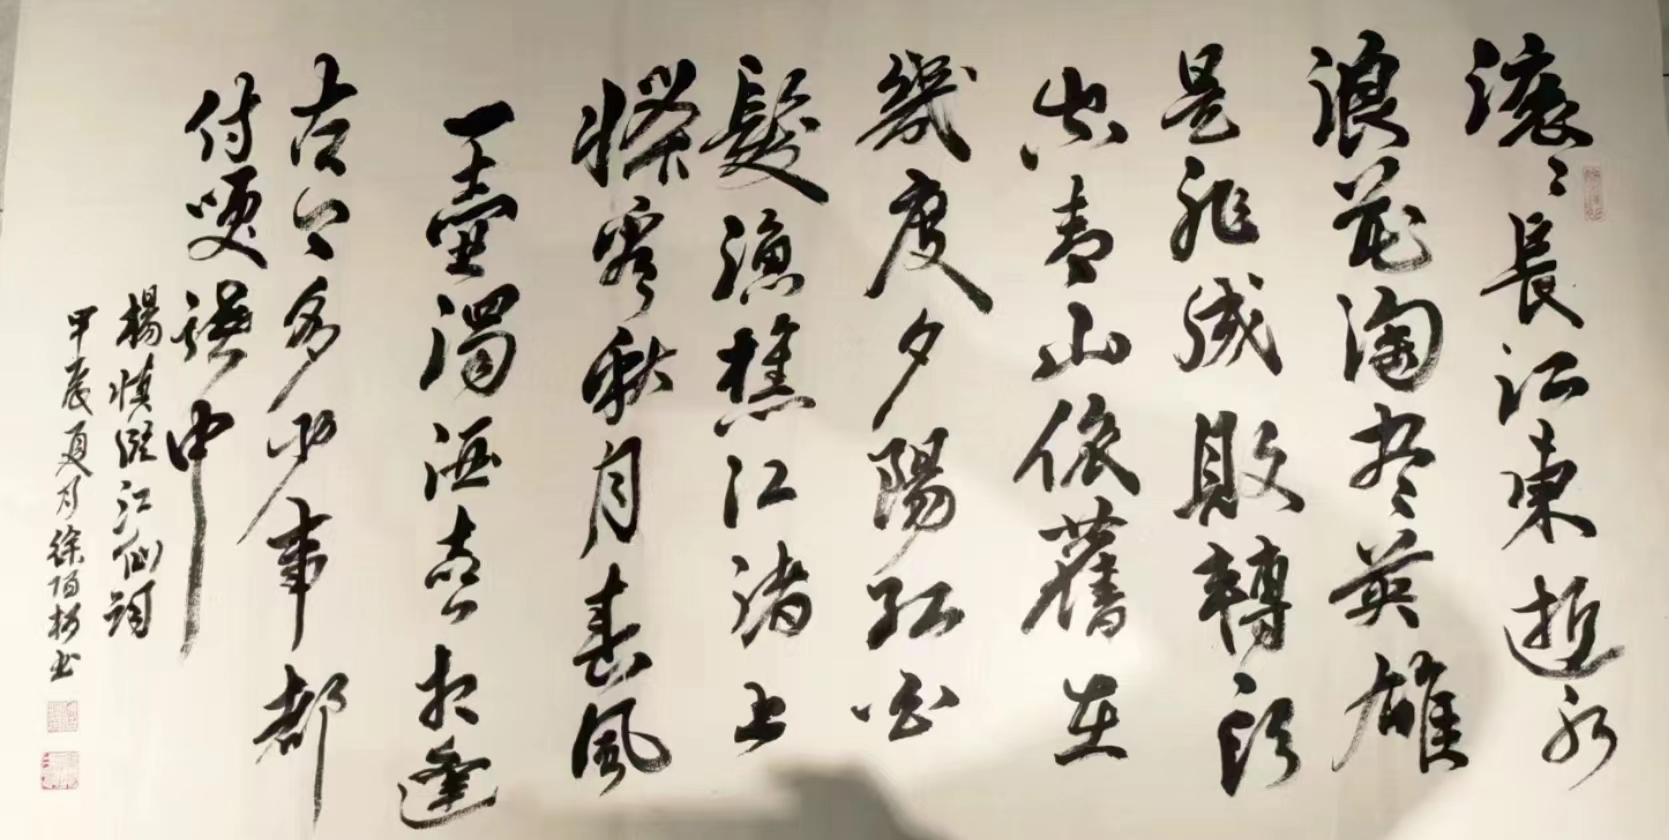 滚〻長江東逝水
浪花淘尽英雄
是非成敗轉頭
空青山依舊在
幾度夕陽红白
髮漁樵江渚上
慣看秋月春風
一壺濁酒喜相逢
古今多少事都
付笑談中
楊慎臨江仙詞
甲辰夏月徐书